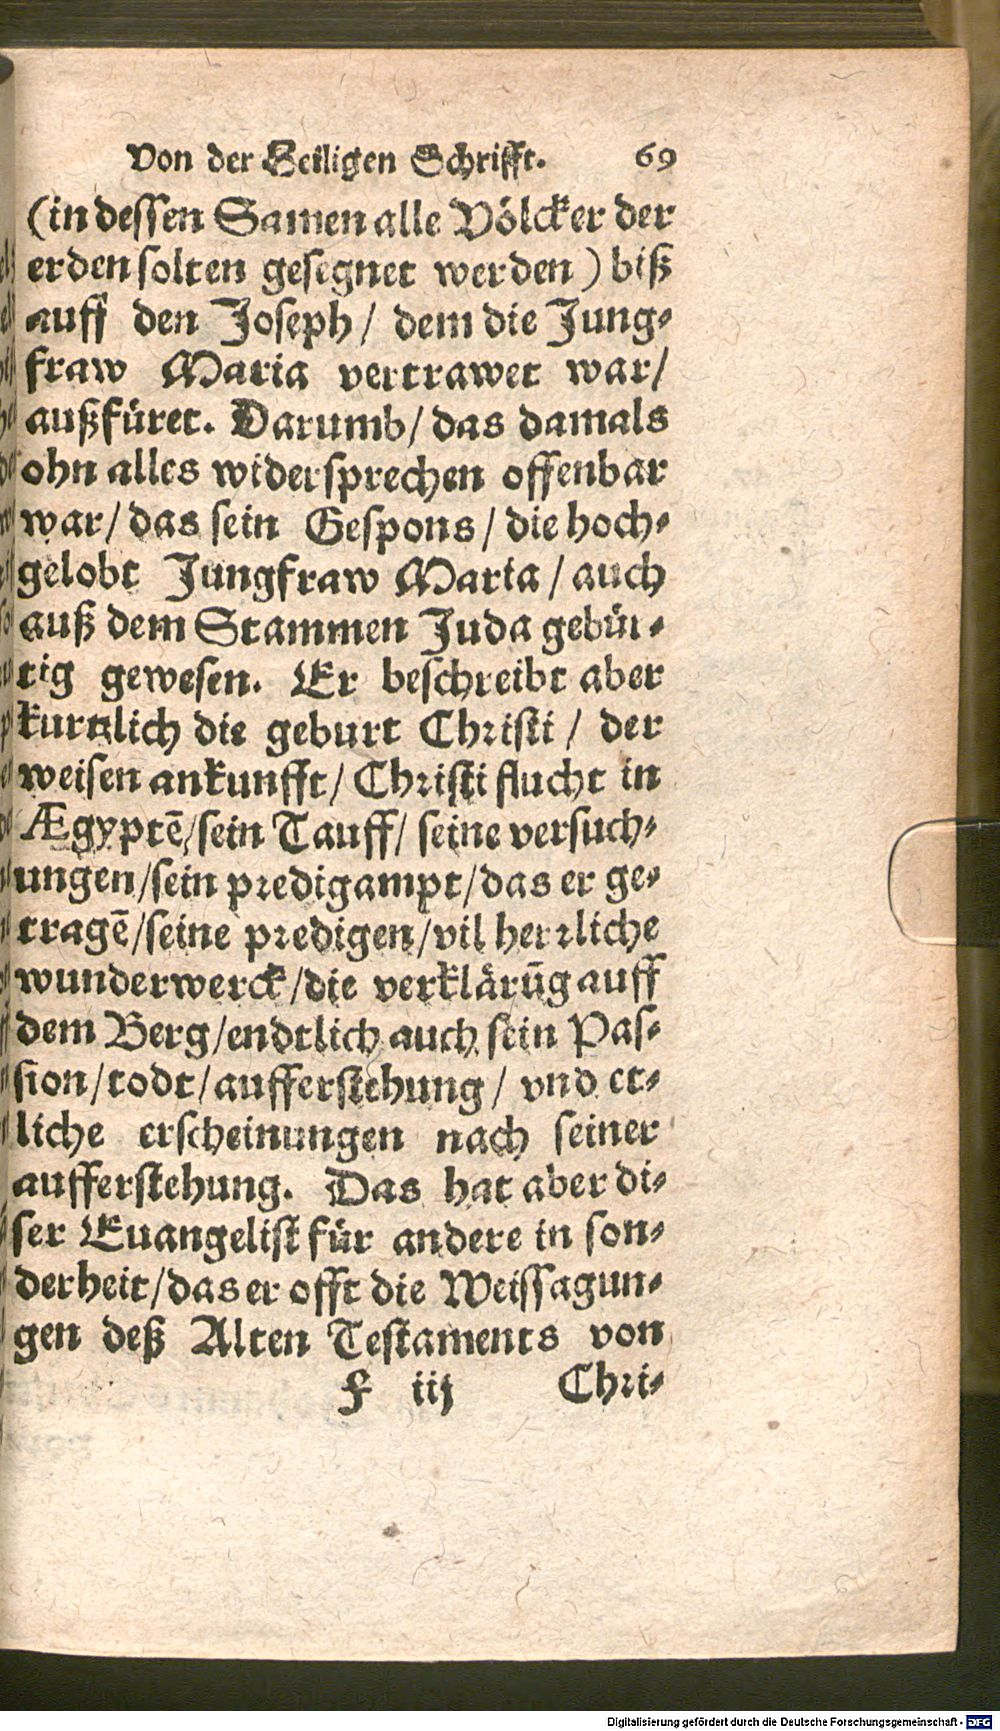 Von der Heiligen Schrifft. 69
(in dessen Samen alle Völcker der
erden solten gesegnet werden) biß
auff den Joseph/ dem die Jung-
fraw Maria vertrawet war/
außfüret. Darumb/ das damals
ohn alles widersprechen offenbar
war/ das sein Gespons/ die hoch-
gelobt Jungfraw Maria/ auch
auß dem Stammen Juda gebür-
tig gewesen. Er beschreibt aber
kurtzlich die geburt Christi/ der
weisen ankunfft/ Christi flucht in
Ægyptē/ sein Tauff/ seine versuch-
ungen/ sein predigampt/ das er ge-
tragē/ seine predigen/ vil herrliche
wunderwerck/ die verklärūg auff
dem Berg/ endtlich auch sein Pas-
sion/ todt/ aufferstehung/ vnd et-
liche erscheinungen nach seiner
aufferstehung. Das hat aber di-
ser Euangelist für andere in son-
derheit/ das er offt die Weissagun-
gen deß Alten Testaments von
F iij Chri-
Digitalisierung gefördert durch die Deutsche Forschungsgemeinschaft - DFG